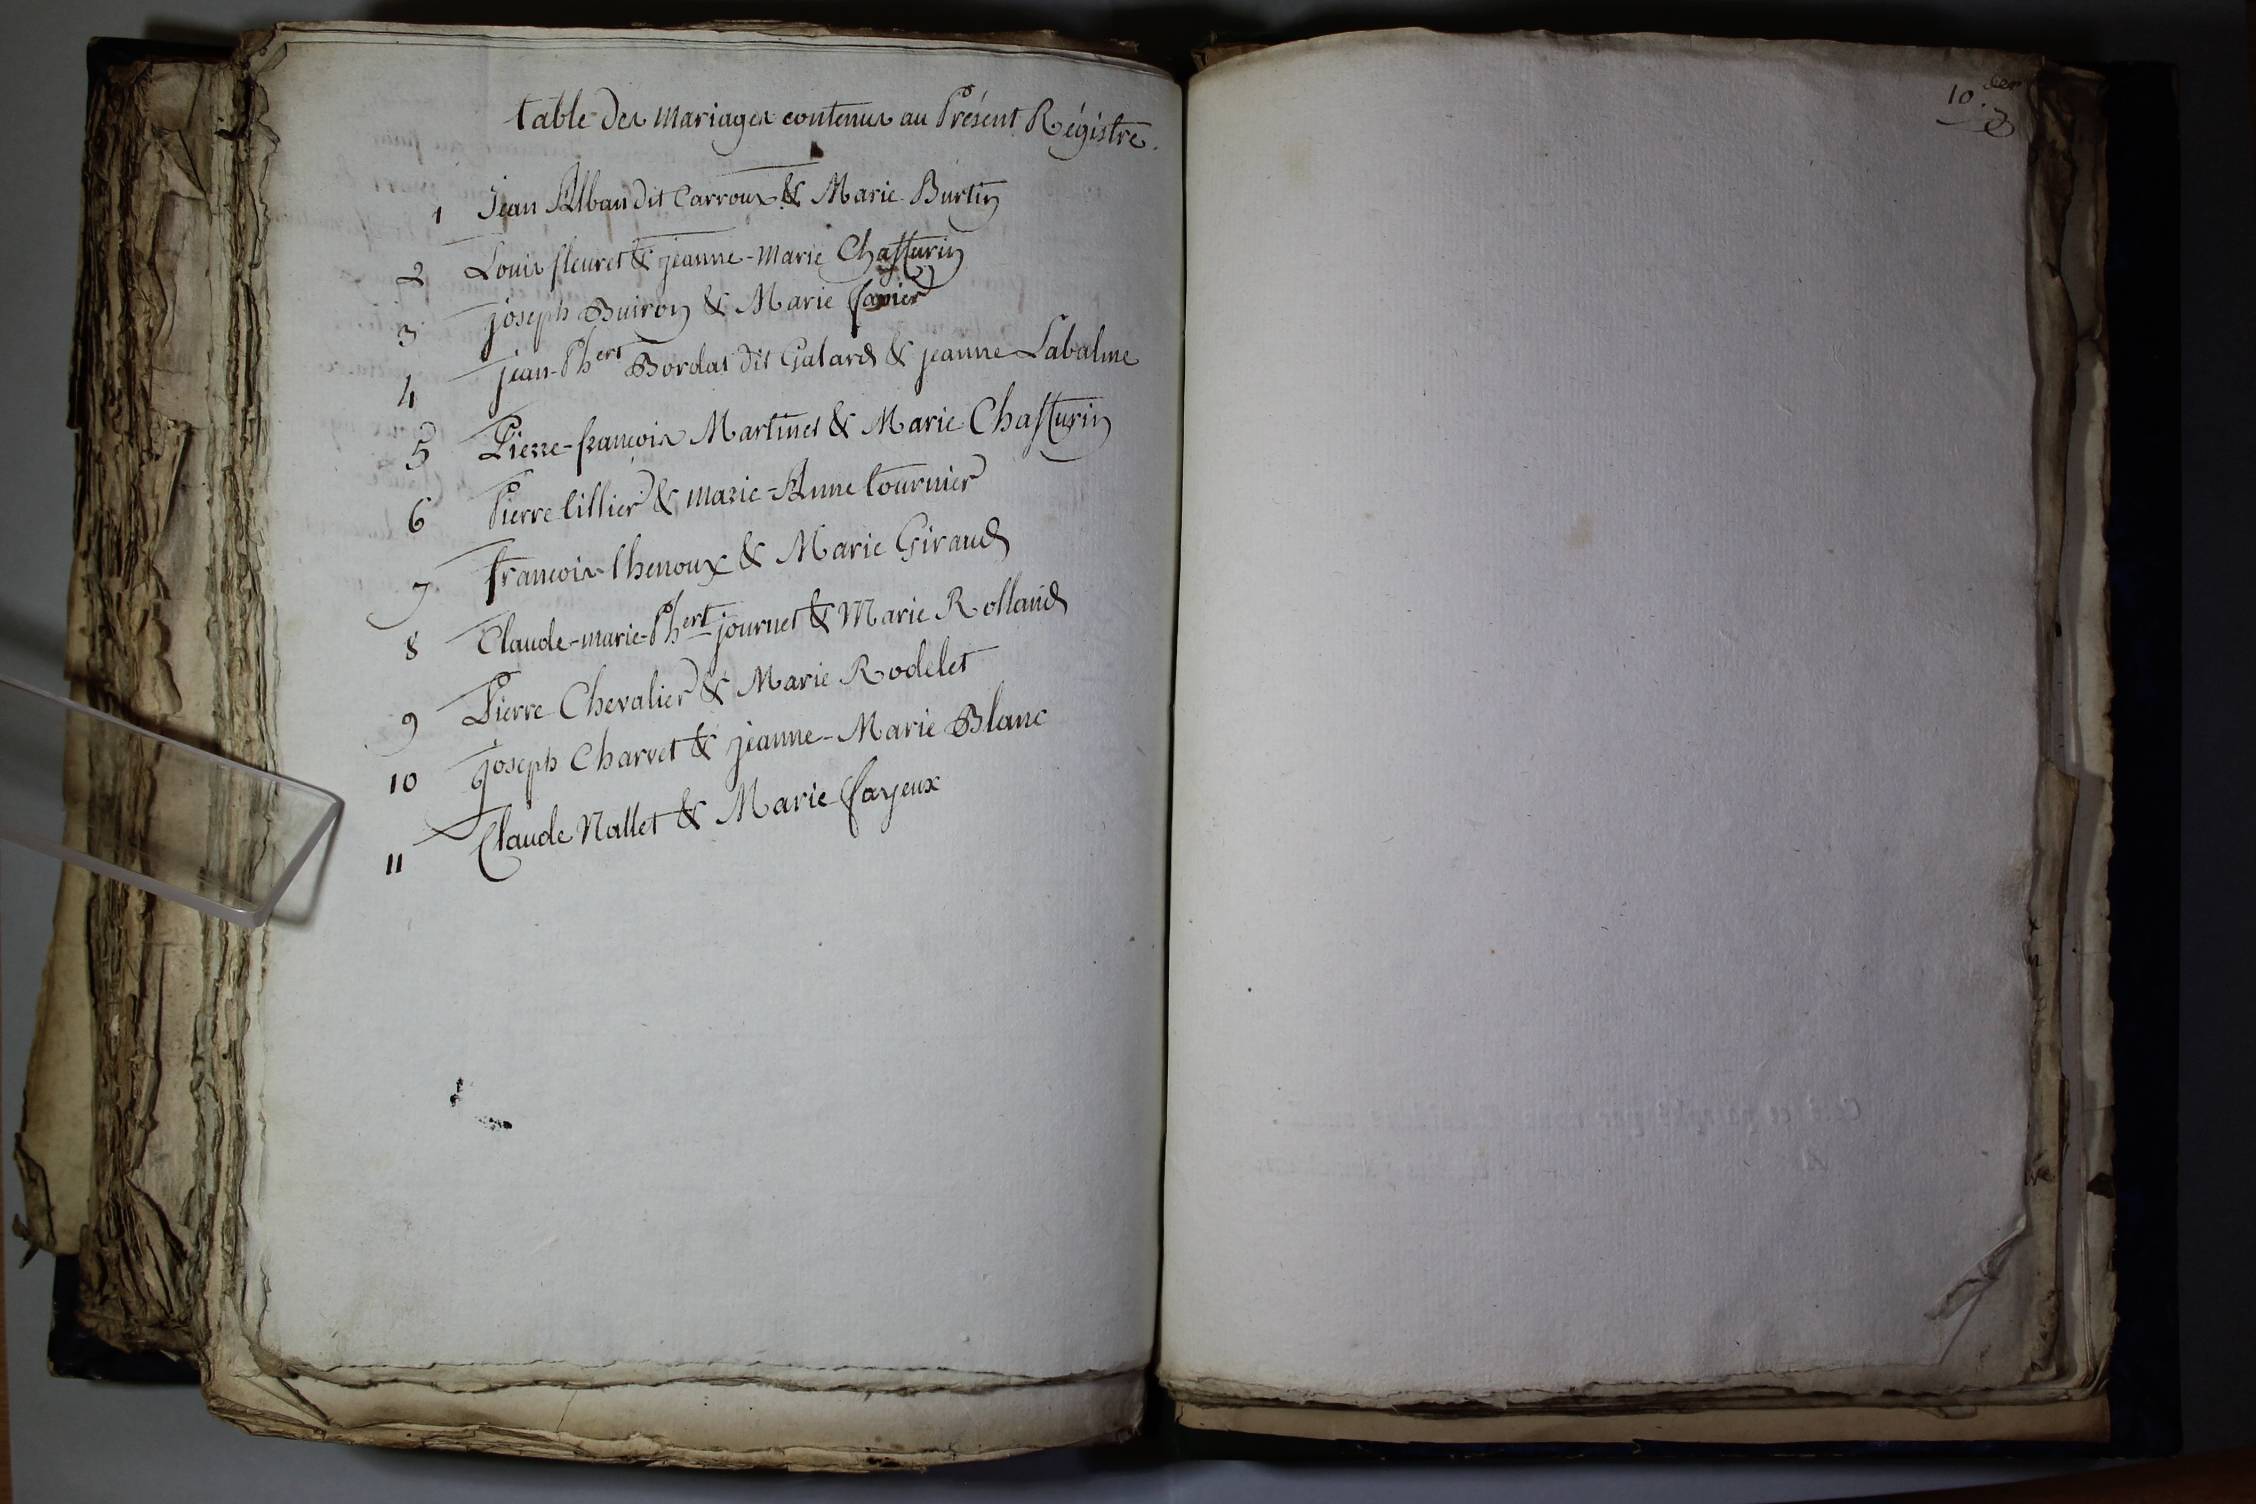 table des mariages contenus au Présent Régistre.
1 Jean Alban dit Carroux & Marie Burtin
2 Louis fleuret & jeanne-Marie Chasturin
3 joseph Buiron & Marie
4 jean-Phert Bordat dit Galard & jeanne Labalme
5 Pierre-françois Martinet & Marie Chasturin
6 Pierre tillier & marie-Anne tournier
7 françois thenoux & Marie Giraud
8 Claude-marie-Phert journet & Marie Rolland
9 Pierre Chevalier & Marie Rodelet
10 joseph Charvet & jeanne-Marie Blanc
11 Claude Nallet & Marie fayeux
10